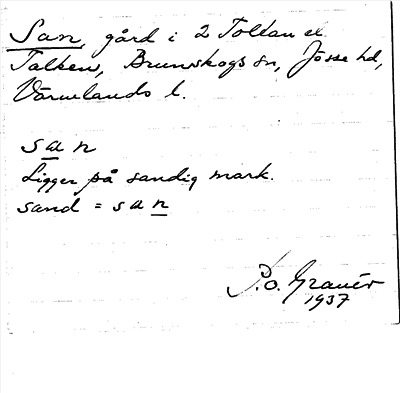 San, gård i 2 Tolkan el.
Talken, Brunskogs sn, Jösse hd,
Värmlands l.
san
Ligger på sandig mark.
sand = san
P.O. Granér
1937